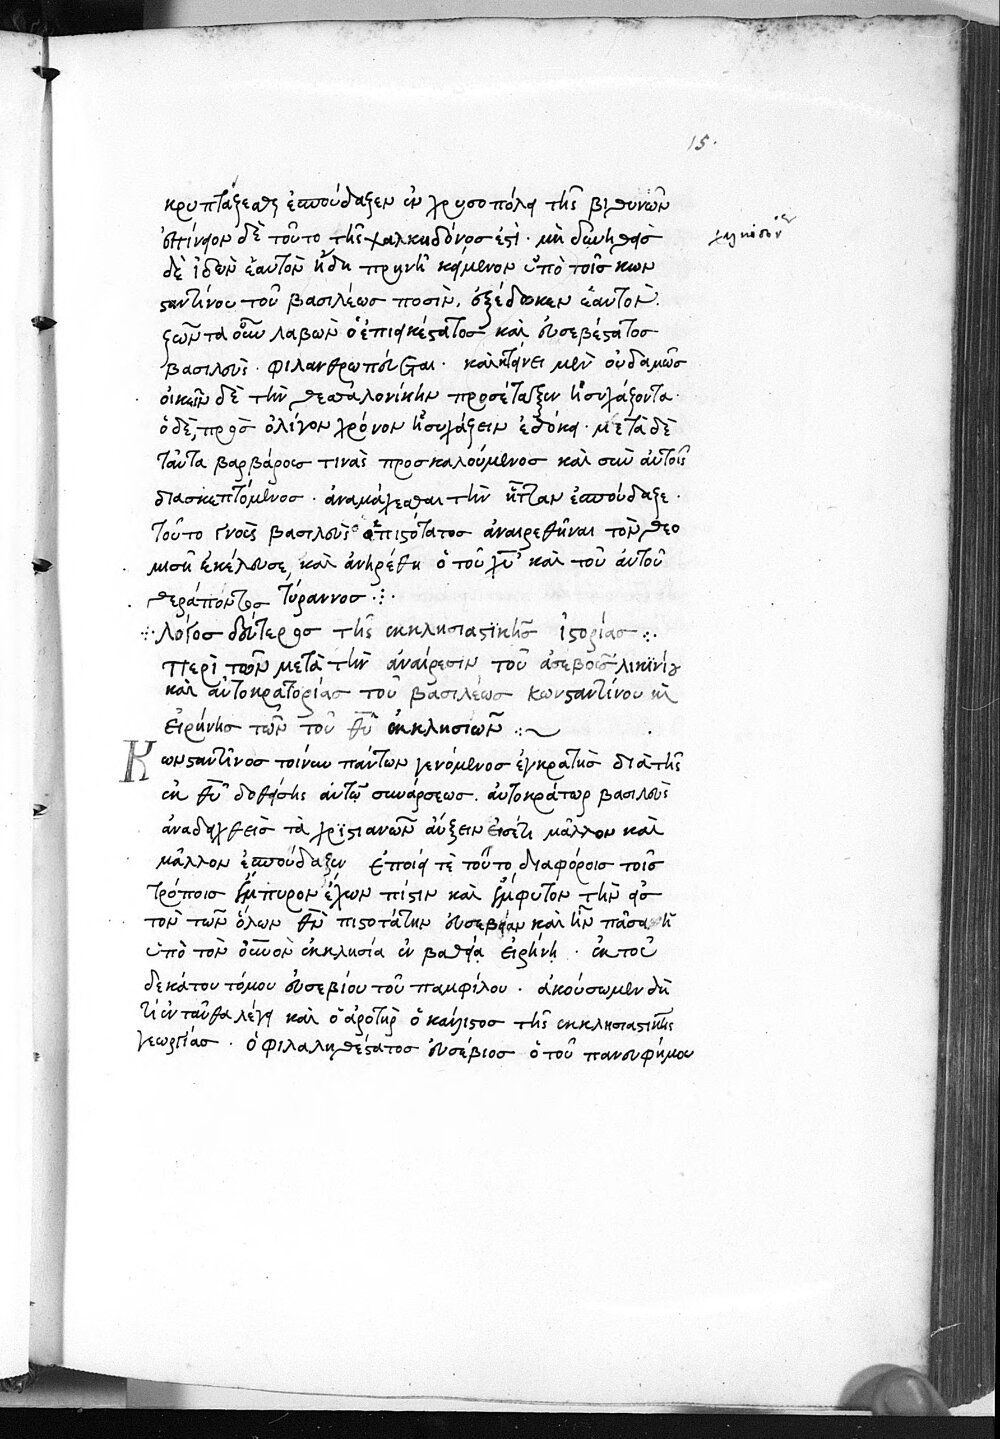 15.
κρυπτάζεσθαι ἐσπούδαζεν ἐν χρυσοπόλει τῆς βιθυνῶν
ἐπίνειον δὲ τοῦτο τῆς χαλκηδόνος ἐστί · μὴ δυνηθεὶς
δὲ ἰδὼν ἑαυτὸν ἤδη πρηνῆ κείμενον ὑπὸ τοῖς κων
σταντίνου τοῦ βασιλέως ποσὶν, ἐξέδωκεν ἑαυτὸν.
ζῶντα οὖν λαβὼν ὁ ἐπιεικέστατος καὶ εὐσεβέστατος
βασιλεὺς · φιλανθρωπεύεται · καὶ κτείνει μὲν οὐδαμῶς
οἰκεῖν δὲ τὴν θεσσαλονίκην προσέταξεν ἡσυχάζοντα ·
ὁ δὲ, πρὸς ὀλίγον χρόνον ἡσυχάζειν ἐδόκει · μετὰ δὲ
ταῦτα βαρβάρους τινὰς προσκαλούμενος καὶ σὺν αὐτοῖς
διασκεπτόμενος · ἀναμάχεσθαι τὴν ἧτταν ἐσπούδαζε ·
τοῦτο γνοὺς βασιλεὺς ὁ πιστότατος ἀναιρεθῆναι τὸν θεο
μισῆ ἐκέλευσε, καὶ ἀνηρέθη ὁ τοῦ χυ καὶ τοῦ αὐτοῦ
θεράποντος τύραννος ·:·
·:· λόγος δεύτερος τῆς ἐκκλησιαστικῆς ἱστορίας ·:·
περὶ τῶν μετὰ τὴν ἀναίρεσιν τοῦ ἀσεβοῦς λικινίου
καὶ αὐτοκρατορίας τοῦ βασιλέως κωνσταντίνου καὶ
εἰρήνης τῶν τοῦ θυ ἐκκλησιῶν ·:~
Κωνσταντῖνος τοίνυν πάντων γενόμενος ἐγκρατὴς διὰ τῆς
ἐκ θυ δοθείσης αὐτῷ συνάρσεως. αὐτοκράτωρ βασιλεὺς
ἀναδειχθεὶς τὰ χριστιανῶν αὔξειν εἰσέτι μᾶλλον καὶ
μᾶλλον ἐσπούδαζεν ἐποίει τὲ τοῦτο διαφόροις τοῖς
τρόποις ἔμπυρον ἔχων πίστιν καὶ ἔμφυτον τὴν εἰς
τὸν τῶν ὅλων θν πιστοτάτην εὐσεβείαν καὶ ἦν πᾶσα ἡ
ὑπὸ τὸν οὐνον ἐκκλησία ἐν βαθείᾳ εἰρήνῃ · ἐκ τοῦ
δεκάτου τόμου εὐσεβίου τοῦ παμφίλου · ἀκούσωμεν δὴ
τί ἐνταῦθα λέγει καὶ ὁ ἀροτὴρ ὁ κάλλιστος τῆς ἐκκλησιαστικῆς
γεωργίας · ὁ φιλαληθέστατος εὐσέβιος ὁ τοῦ πανευφήμου